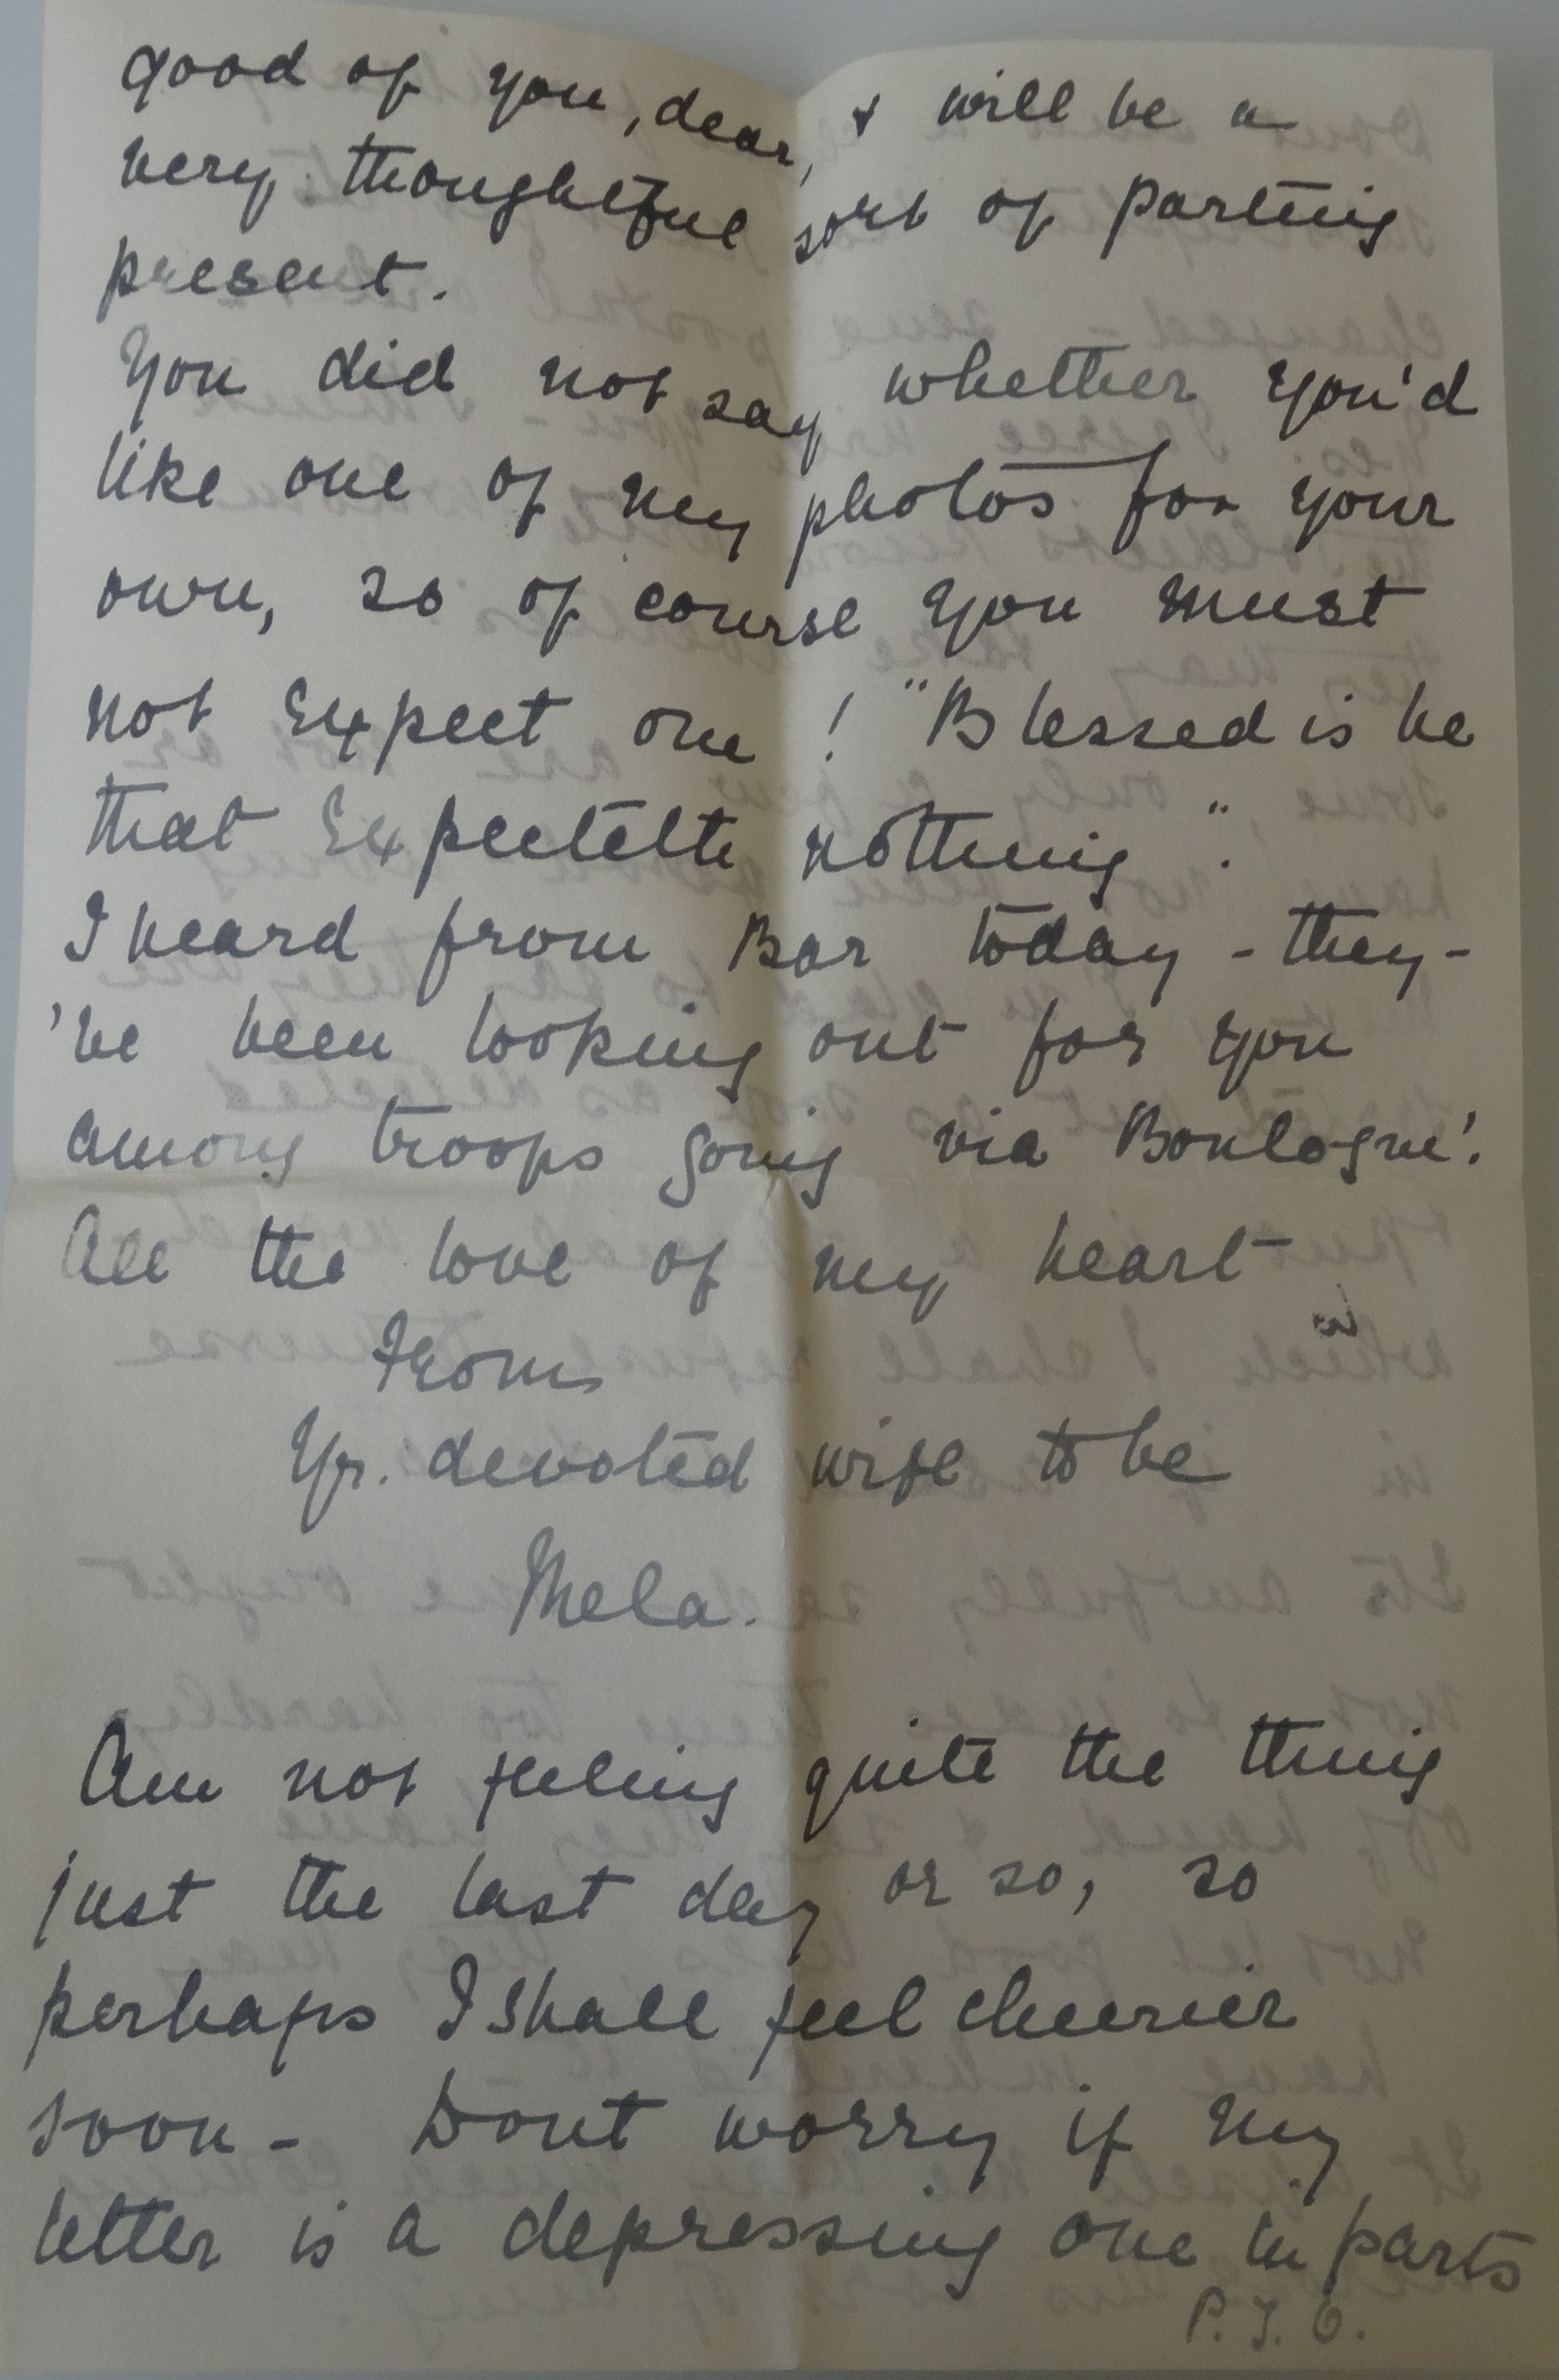 good of you, dear, & will be a
very thoughtful sort of parting
present.
You did not say whether you'd
like one of my photos for your
own, so of course you must
not expect one! "Blessed is he
that expecteth nothing".
I heard from Bar today - they-
've been looking out for you
among troops going via Boulogne!
All the love of my heart
From
Yr. devoted wife to be
Mela.
Am not feeling quite the thing
just the last day or so, so
perhaps I shall feel cheerier
soon - Dont worry if my
letter is a depressing one in parts
P.T.O.